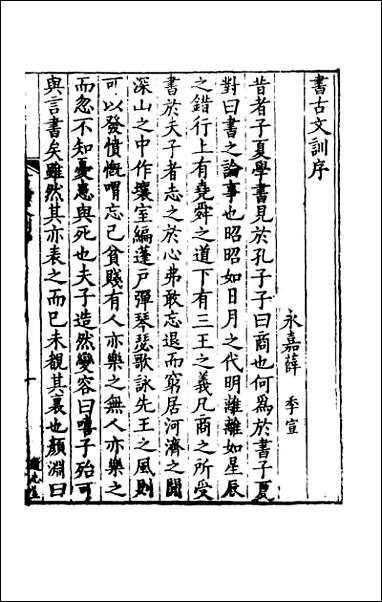 書古文訓序
永嘉薛 季宣
昔者子夏學書見於孔子子曰商也何爲於書子夏
對曰書之論事也昭昭如日月之代明離離如星辰
之錯行上有堯舜之道下有三王之義凡商之所受
書於夫子者志之於心弗敢忘退而窮居河濟之間
深山之中作壤室編蓬戶彈琴瑟歌詠先王之風則
可以發憤慨喟忘己貧賤有人亦樂之無人亦樂之
而忽不知憂患與死也夫子造然變容曰嘻子殆可
與言書矣雖然其亦表之而已未覩其裏也顏淵曰